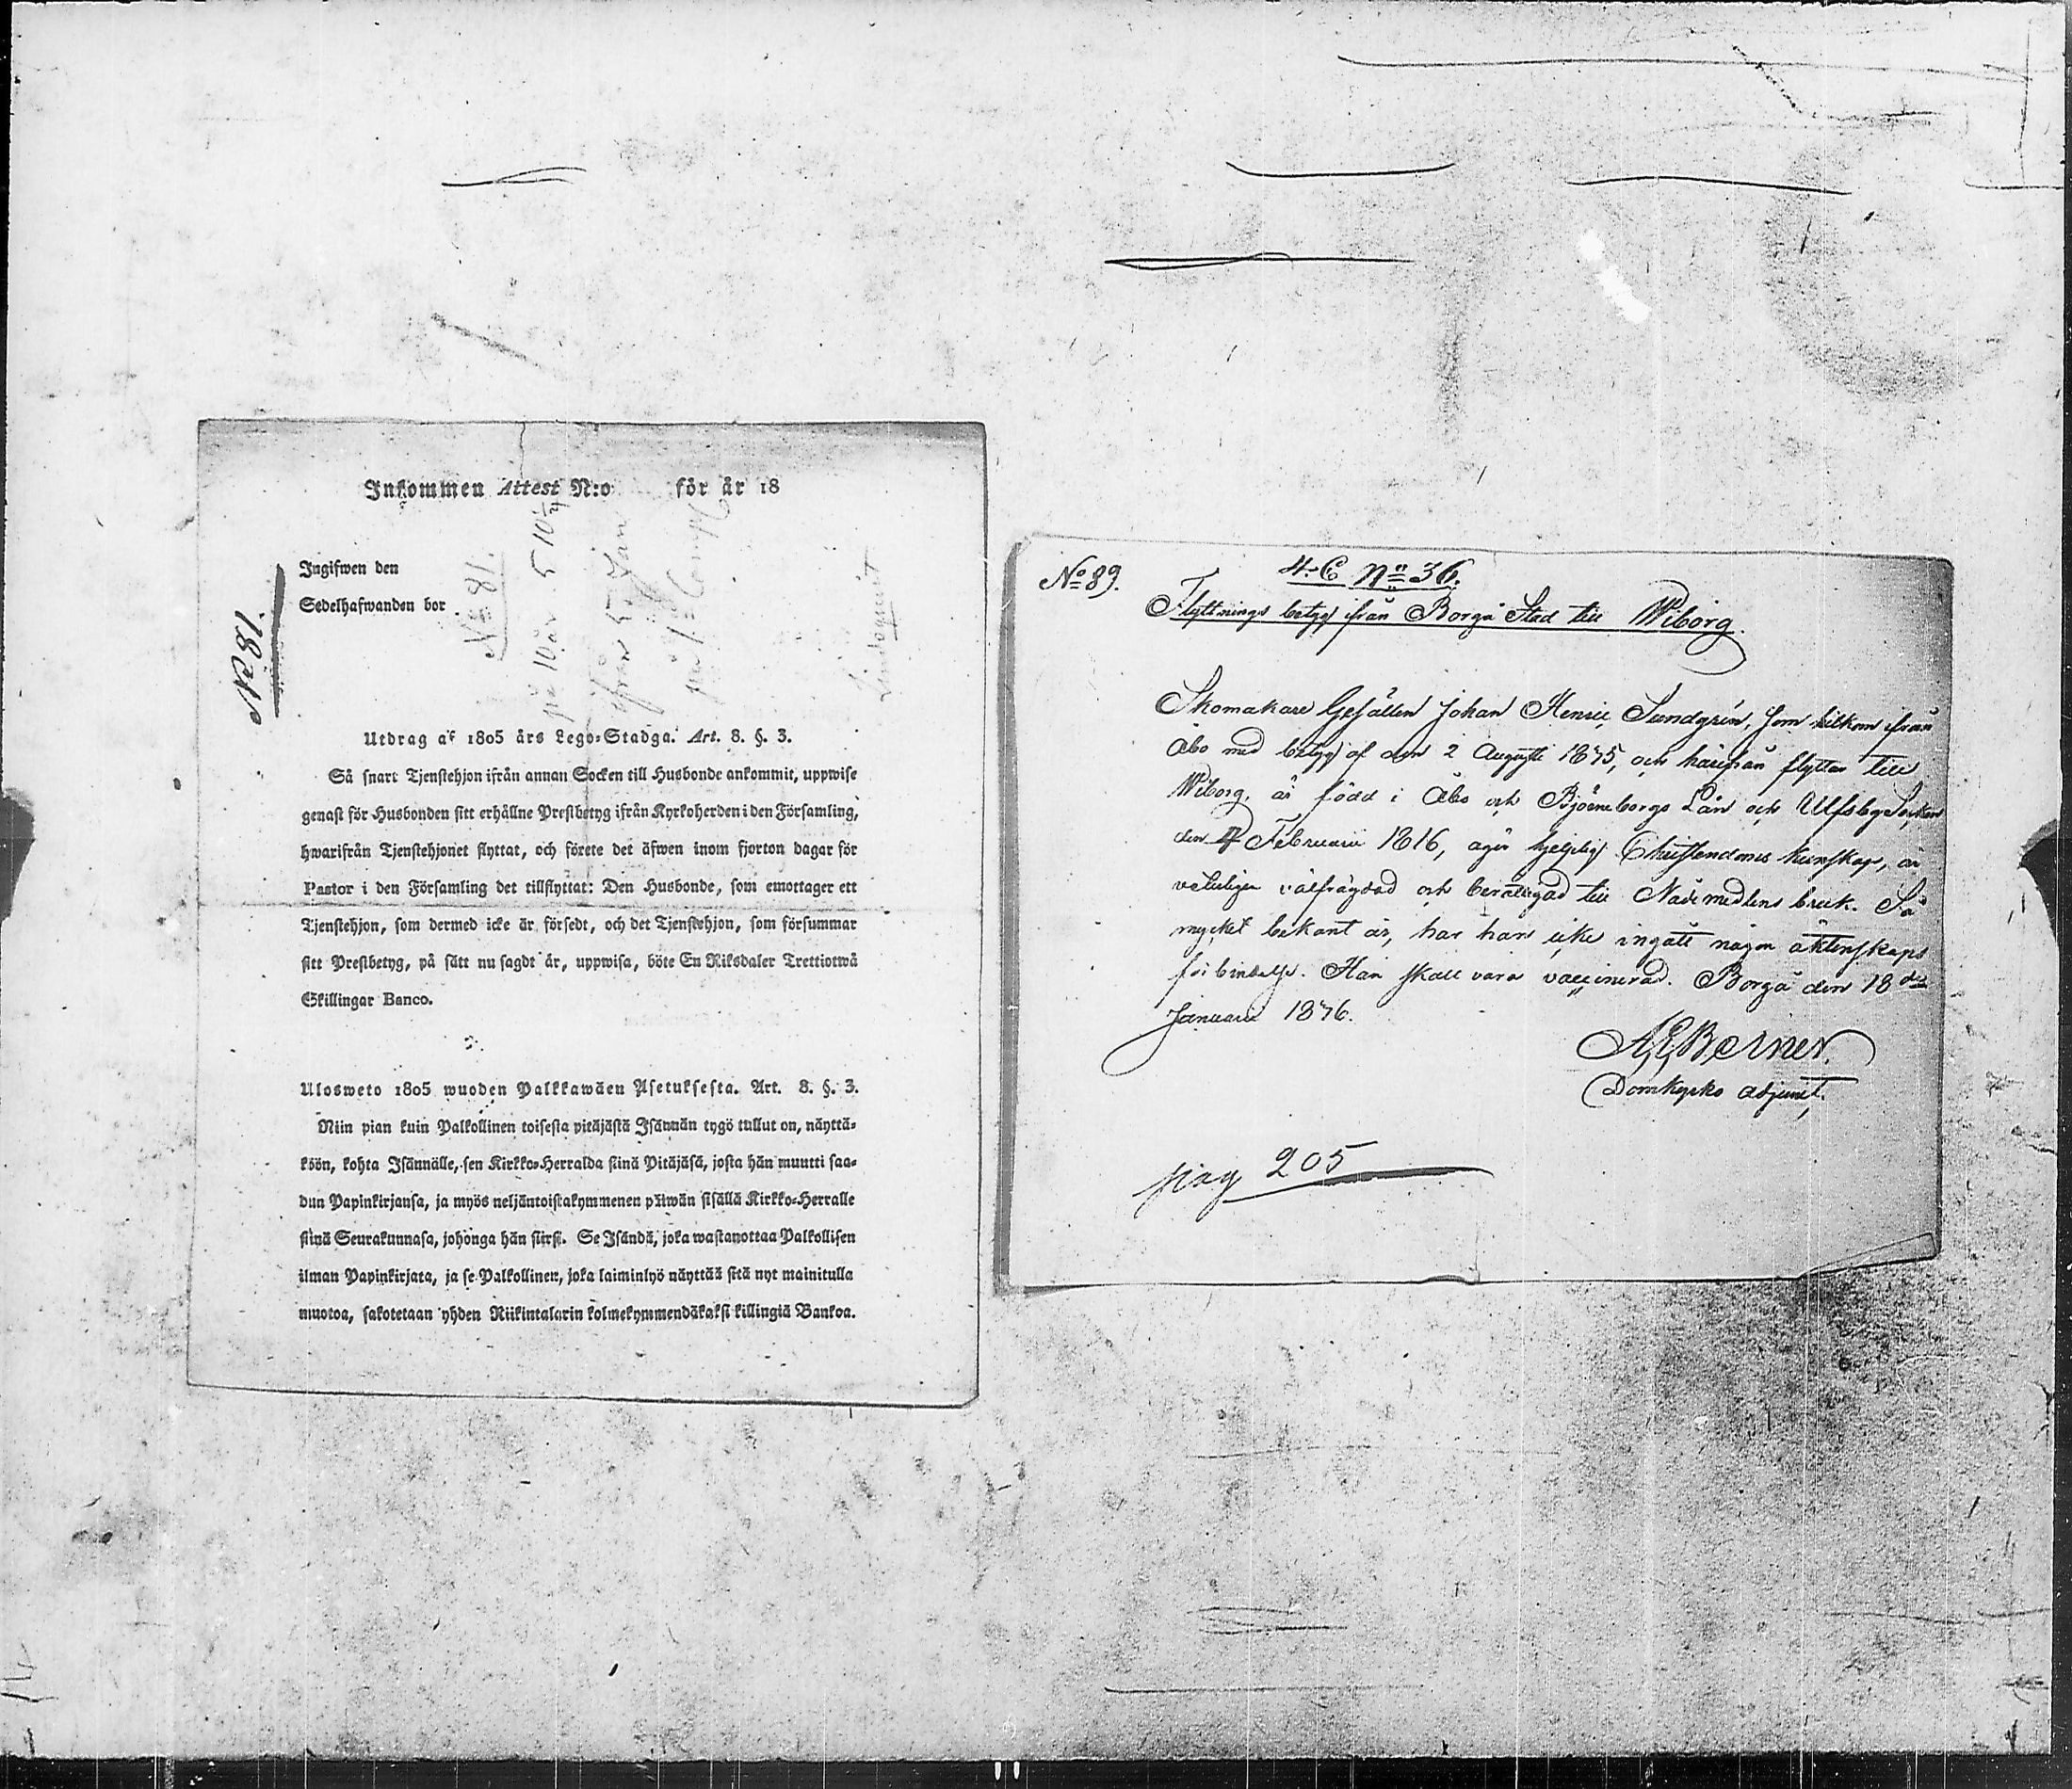 Inkommen Attest N:o för år 18
Ingifwen den
Sedelhafwanden bor
No 81.
No 81.
på 10 år
ifrån
Lindequist
Utdrag af 1805 års Lego-Stadga. Art. 8. §. 3.
Så snart Tjenstehjon ifrån annan Socken till Husbonde ankommit, uppwise
genast för Husbonden sitt erhållne Prestbetyg ifrån Kyrkoherden i den Församling,
hwarifrån Tjenstehjonet flyttat, och förete det äfwen inom fjorton dagar för
Pastor i den Församling det tillflyttat: Den Husbonde, som emottager ett
Tjenstehjon, som dermed icke är försedt, och det Tjenstehjon, som försummar
sitt Prestbetyg, på sätt nu sagdt är, uppwisa, böte En Riksdaler Trettiotwå
Skillingar Banco.
Ulosweto 1805 wuoden Palkkawäen Asetuksesta. Art. 8. §. 3.
Niin pian kuin Palkollinen toisesta pitäjästä Isännän tygö tullut on, näyttä-
köön, kohta Isännälle, sen Kirkko-Herralda siinä Pitäjäsä, josta hän muutti saa-
dun Papinkirjansa, ja myös neljäntoistakymmenen päiwän sisällä Kirkko-Herralle
siinä Seurakunnasa, johonga hän siirsi. Se Isändä, joka wastanottaa Palkollisen
ilman Papinkirjata, ja se Palkollinen, joka laiminlyö näyttää sitä nyt mainitulla
muotoa, sakotetaan yhden Riikintalarin kolmekymmendäkaksi killingiä Bankoa.
No 89.
4. C No 36.
Flyttnings betyg ifrån Borgå Stad till Wiborg.
Skomakare Gesällen Johan Henric Sundgrén, som hitkom ifrån
Åbo med betyg af den 2 Augusti 1875, och härifrån flyttar till
Wiborg, är född i Åbo och Björneborgs Län och Ulfsby Socken
den 4 Februarii 1816, äger hjelplig Christendoms kunskap, är
veterligen välfrägdad och berättigad till Nådemedlens bruk. Så
mycket bekant är, har han icke ingått någon äktenskaps
förbindelse. Han skall vara vaccinerad. Borgå den 18de
Januarii 1876.
A. E. Berner.
Domkyrko adjunct.
pag 205